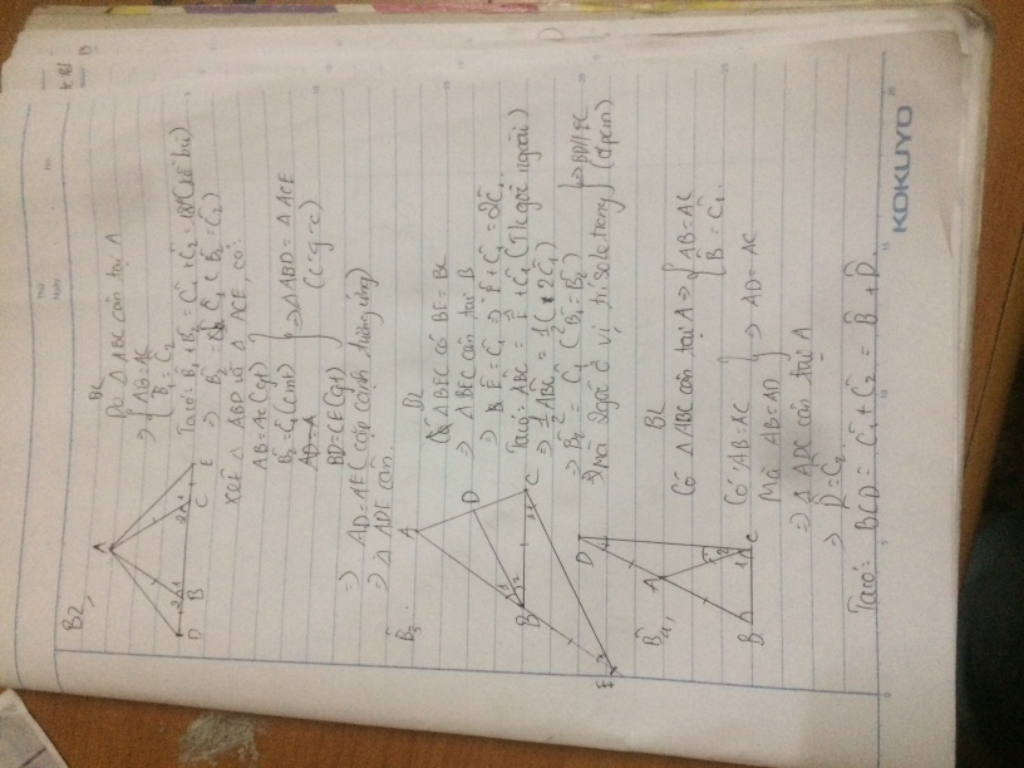 Thứ
Ngày
No.
B2,
BL
Do Δ ABC cân tại A
=> { AB = AC
B̂₁ = Ĉ₂
Ta có: B̂₁ + B̂₂ = Ĉ₁ + Ĉ₂ = (kề bù)
=> B̂₂ = Ĉ₁ ( B̂₁ = Ĉ₂)
Xét Δ ABD và Δ ACE, có:
AB = AC (gt)
B̂₂ = Ĉ₁ (cmt)
AD = A
BD = CE (gt)
} => Δ ABD = Δ ACE
(c-g-c)
=> AD = AE (cặp cạnh tương ứng)
=> Δ ADE cân.
A
D B C E
2 1 2 1
B3.
BL
Có Δ BEC có BE = BC
=> Δ BEC cân tại B
=> Ê = Ĉ₁ => Ê + Ĉ₁ = 2Ĉ₁.
Ta có: ABC = Ê + Ĉ₁ (T/c góc ngoài)
=> ½ ABC = ½ (2Ĉ₁)
=> B̂₂ = Ĉ₁ (B̂₁ = B̂₂)
Mà 2 góc ở vị trí so le trong
} => BD // EC
(đpcm)
A
D
B
C
E
B4,
BL
Có Δ ABC cân tại A => { AB = AC
B̂ = Ĉ₁.
Có AB = AC
Mà AB = AD
} => AD = AC
=> Δ ADC cân tại A
=> D̂ = Ĉ₂
Ta có: BCD = Ĉ₁ + Ĉ₂ = B̂ + D̂.
D
A
B
C
1 2
KOKUYO